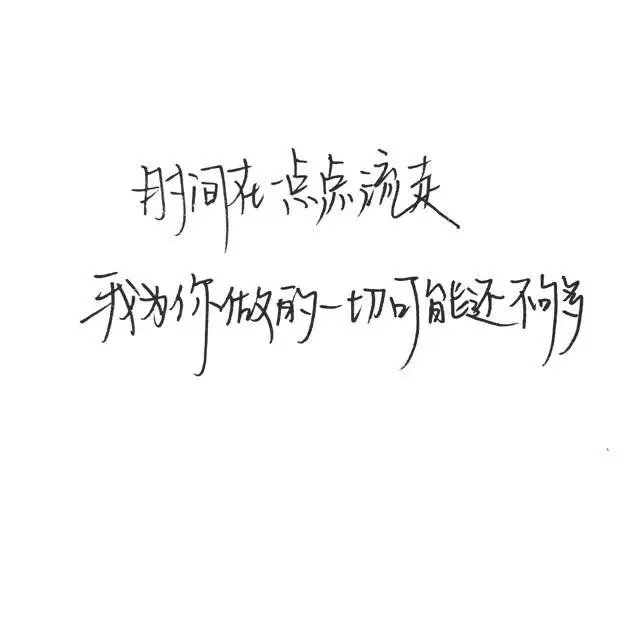 时间在一点点流走
我为你做的一切可能还不够多